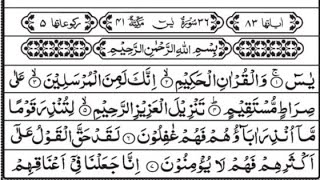 اٰيَاتُهَا ٨٣ ٣٦ سُوْرَةُ يٰسٓ مَكِّيَّةٌ ٤١ رُكُوْعَاتُهَا ٥
بِسْمِ اللّٰهِ الرَّحْمٰنِ الرَّحِيْمِ
يٰسٓ ۚ ﴿١﴾ وَالْقُرْاٰنِ الْحَكِيْمِ ۙ ﴿٢﴾ اِنَّكَ لَمِنَ الْمُرْسَلِيْنَ ۙ ﴿٣﴾ عَلٰى
صِرَاطٍ مُّسْتَقِيْمٍ ؕ ﴿٤﴾ تَنْزِيْلَ الْعَزِيْزِ الرَّحِيْمِ ۙ ﴿٥﴾ لِتُنْذِرَ قَوْمًا
مَّاۤ اُنْذِرَ اٰبَآؤُهُمْ فَهُمْ غٰفِلُوْنَ ﴿٦﴾ لَقَدْ حَقَّ الْقَوْلُ عَلٰۤى
اَكْثَرِهِمْ فَهُمْ لَا يُؤْمِنُوْنَ ﴿٧﴾ اِنَّا جَعَلْنَا فِيْۤ اَعْنَاقِهِمْ